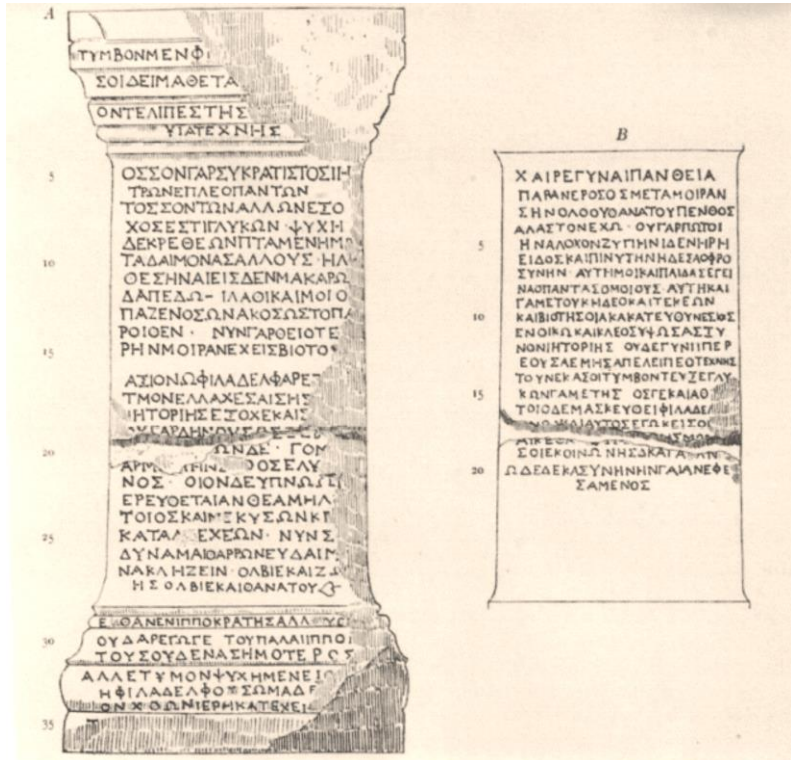 A
ΤΥΜΒΟΝΜΕΝΦ
ΣΟΙΔΕΙΜΑΘΕΤΑ
ΟΝΤΕΛΙΠΕΣΤΗΣ
ΥΓΑΤΕΧΝΗΣ
5 ΟΣΣΟΝΓΑΡΣΥΚΡΑΤΙΣΤΟΣΙΗ
ΤΡΩΝΕΠΛΕΟΠΑΝΤΩΝ
ΤΟΣΣΟΝΤΩΝΑΛΛΩΝΕΞΟ
ΧΟΣΕΣΤΙΓΛΥΚΩΝ · ΨΥΧΗ
ΔΕΚΡΕΘΕΩΝΠΤΑΜΕΝΗΜ
10 ΤΑΔΑΙΜΟΝΑΣΑΛΛΟΥΣ · ΗΛ
ΟΕΣΗΝΑΙΕΙΣΔΕΝΜΑΚΑΡΩ
ΔΑΠΕΔΩ – ΙΛΑΟΙΚΑΙΜΟΙΟ
ΠΑΖΕΝΟΣΩΝΑΚΟΣΩΣΤΟΠΑ
ΡΟΙΘΕΝ · ΝΥΝΓΑΡΘΕΙΟΤΕ
15 ΡΗΝΜΟΙΡΑΝΕΧΕΙΣΒΙΟΤΟ
ΑΞΙΟΝΩΦΙΛΑΔΕΛΦΑΡΕΤ
ΤΜΟΝΕΛΛΑΧΕΣΑΙΣΗΣ
ΙΗΤΟΡΙΗΣΕΞΟΧΕΚΑΙΣ
20 ΩΝΔΕ · ΓΟΜ
ΟΣΕΛΥ
ΝΟΣ · ΟΙΟΝΔΕΥΠΝΩ
ΕΡΕΥΘΕΤΑΙΑΝΘΕΑΜΗΛ
ΤΟΙΟΣΚΑΙΝΕΚΥΣΩΝΚ
25 ΚΑΤΑΛ ΕΧΕΩΝ · ΝΥΝΣ
ΔΥΝΑΜΑΙΘΑΡΡΩΝΕΥΔΑΙΜ
ΝΑΚΛΗΖΕΙΝ · ΟΛΒΙΕΚΑΙΖΩ
ΗΣΟΛΒΙΕΚΑΙΘΑΝΑΤΟΥ
ΕΘΑΝΕΝΙΠΠΟΚΡΑΤΗΣΑΛΛ
30 ΟΥΔΑΡΕΓΩΓΕ ΤΟΥΠΑΛΑΙΙΠΠΟ
ΤΟΥΣΟΥΔΕΝΑΣΗΜΟΤΕΡΟΣ
ΑΛΛΕΤΥΜΟΝΨΥΧΗΜΕΝΕ
ΗΦΙΛΑΔΕΛΦΟΥΣΩΜΑΔΕ
ΟΝΧΘΩΝΙΕΡΗΚΑΤΕΧΕΙ
35
B
ΧΑΙΡΕΓΥΝΑΙΠΑΝΘΕΙΑ
ΠΑΡΑΝΕΡΟΣΟΣΜΕΤΑΜΟΙΡΑΝ
ΣΗΝΟΛΟΟΥΘΑΝΑΤΟΥΠΕΝΘΟΣ
ΑΛΑΣΤΟΝΕΧΩ · ΟΥΓΑΡΠΩΤΟΙ
5 ΗΝΑΛΟΧΟΝΖΥΓΙΗΝΙΔΕΝΗΡΗ
ΕΙΔΟΣΚΑΙΠΙΝΥΤΗΝΗΔΕΣΑΟΦΡΟ
ΣΥΝΗΝ · ΑΥΤΗΜΟΙΚΑΙΠΑΙΔΑΣΕΓΕΙ
ΝΑΟΠΑΝΤΑΣΟΜΟΙΟΥΣ · ΑΥΤΗΚΑΙ
ΓΑΜΕΤΟΥΚΗΔΕΟΚΑΙΤΕΚΕΩΝ
10 ΚΑΙΒΙΟΤΗΣΟΙΑΚΑΚΑΤΕΥΘΥΝΕΣΙΟΣ
ΕΝΟΙΚΩΚΑΙΚΛΕΟΣΥΨΩΣΑΣΞΥ
ΝΟΝΙΗΤΟΡΙΗΣ ΟΥΔΕΓΥΝΗΠΕΡ
ΕΟΥΣΑΕΜΗΣΑΠΕΛΕΙΠΕΟΤΕΧΝΗΣ
ΤΟΥΝΕΚΑΣΟΙΤΥΜΒΟΝΤΕΥΞΕΓΛΥ
15 ΚΩΝΓΑΜΕΤΗΣ ΟΣΓΕΚΑΙΑΘ
ΤΟΙΟΔΕΜΑΣΚΕΥΘΕΙΦΙΛΑΔΕΛ
ΣΟΙΕΚΟΙΝΩΝΗΣΑΚΑΤΑ ΑΝ
20 ΩΔΕΔΕΚΑΞΥΝΗΝΗΝΓΑΙΑΝΕΦΕ
ΣΑΜΕΝΟΣ